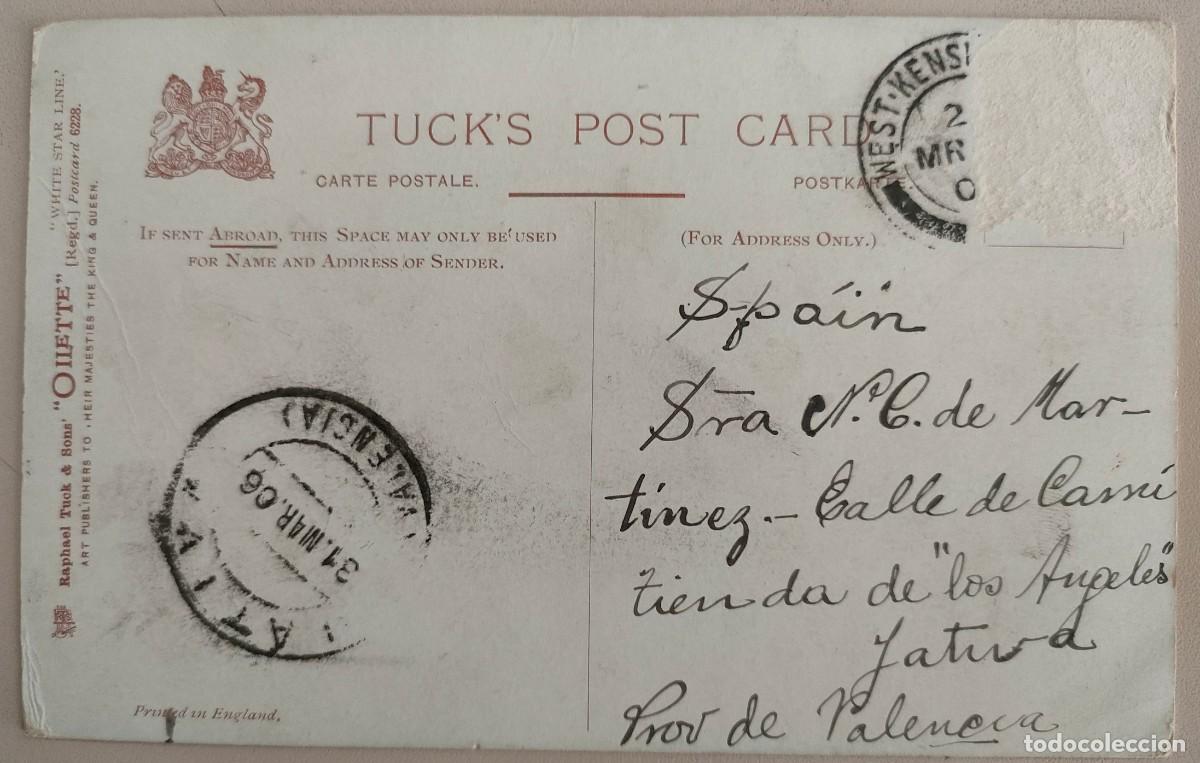 TUCK'S POST CARD
CARTE POSTALE.
POSTKART
IF SENT ABROAD, THIS SPACE MAY ONLY BE USED
FOR NAME AND ADDRESS OF SENDER.
(FOR ADDRESS ONLY.)
WEST·KENSI
2
MR
0
"WHITE STAR LINE."
Raphael Tuck & Sons' "OILETTE" [Regd.] Postcard 6228.
ART PUBLISHERS TO THEIR MAJESTIES THE KING & QUEEN.
Spain
Sra N. C. de Mar-
tinez.- Calle de
tienda de "los Angeles"
Jativa
Prov de Valencia
JATIVA
31.MAR.06
VALENCIA)
Printed in England.
todocoleccion